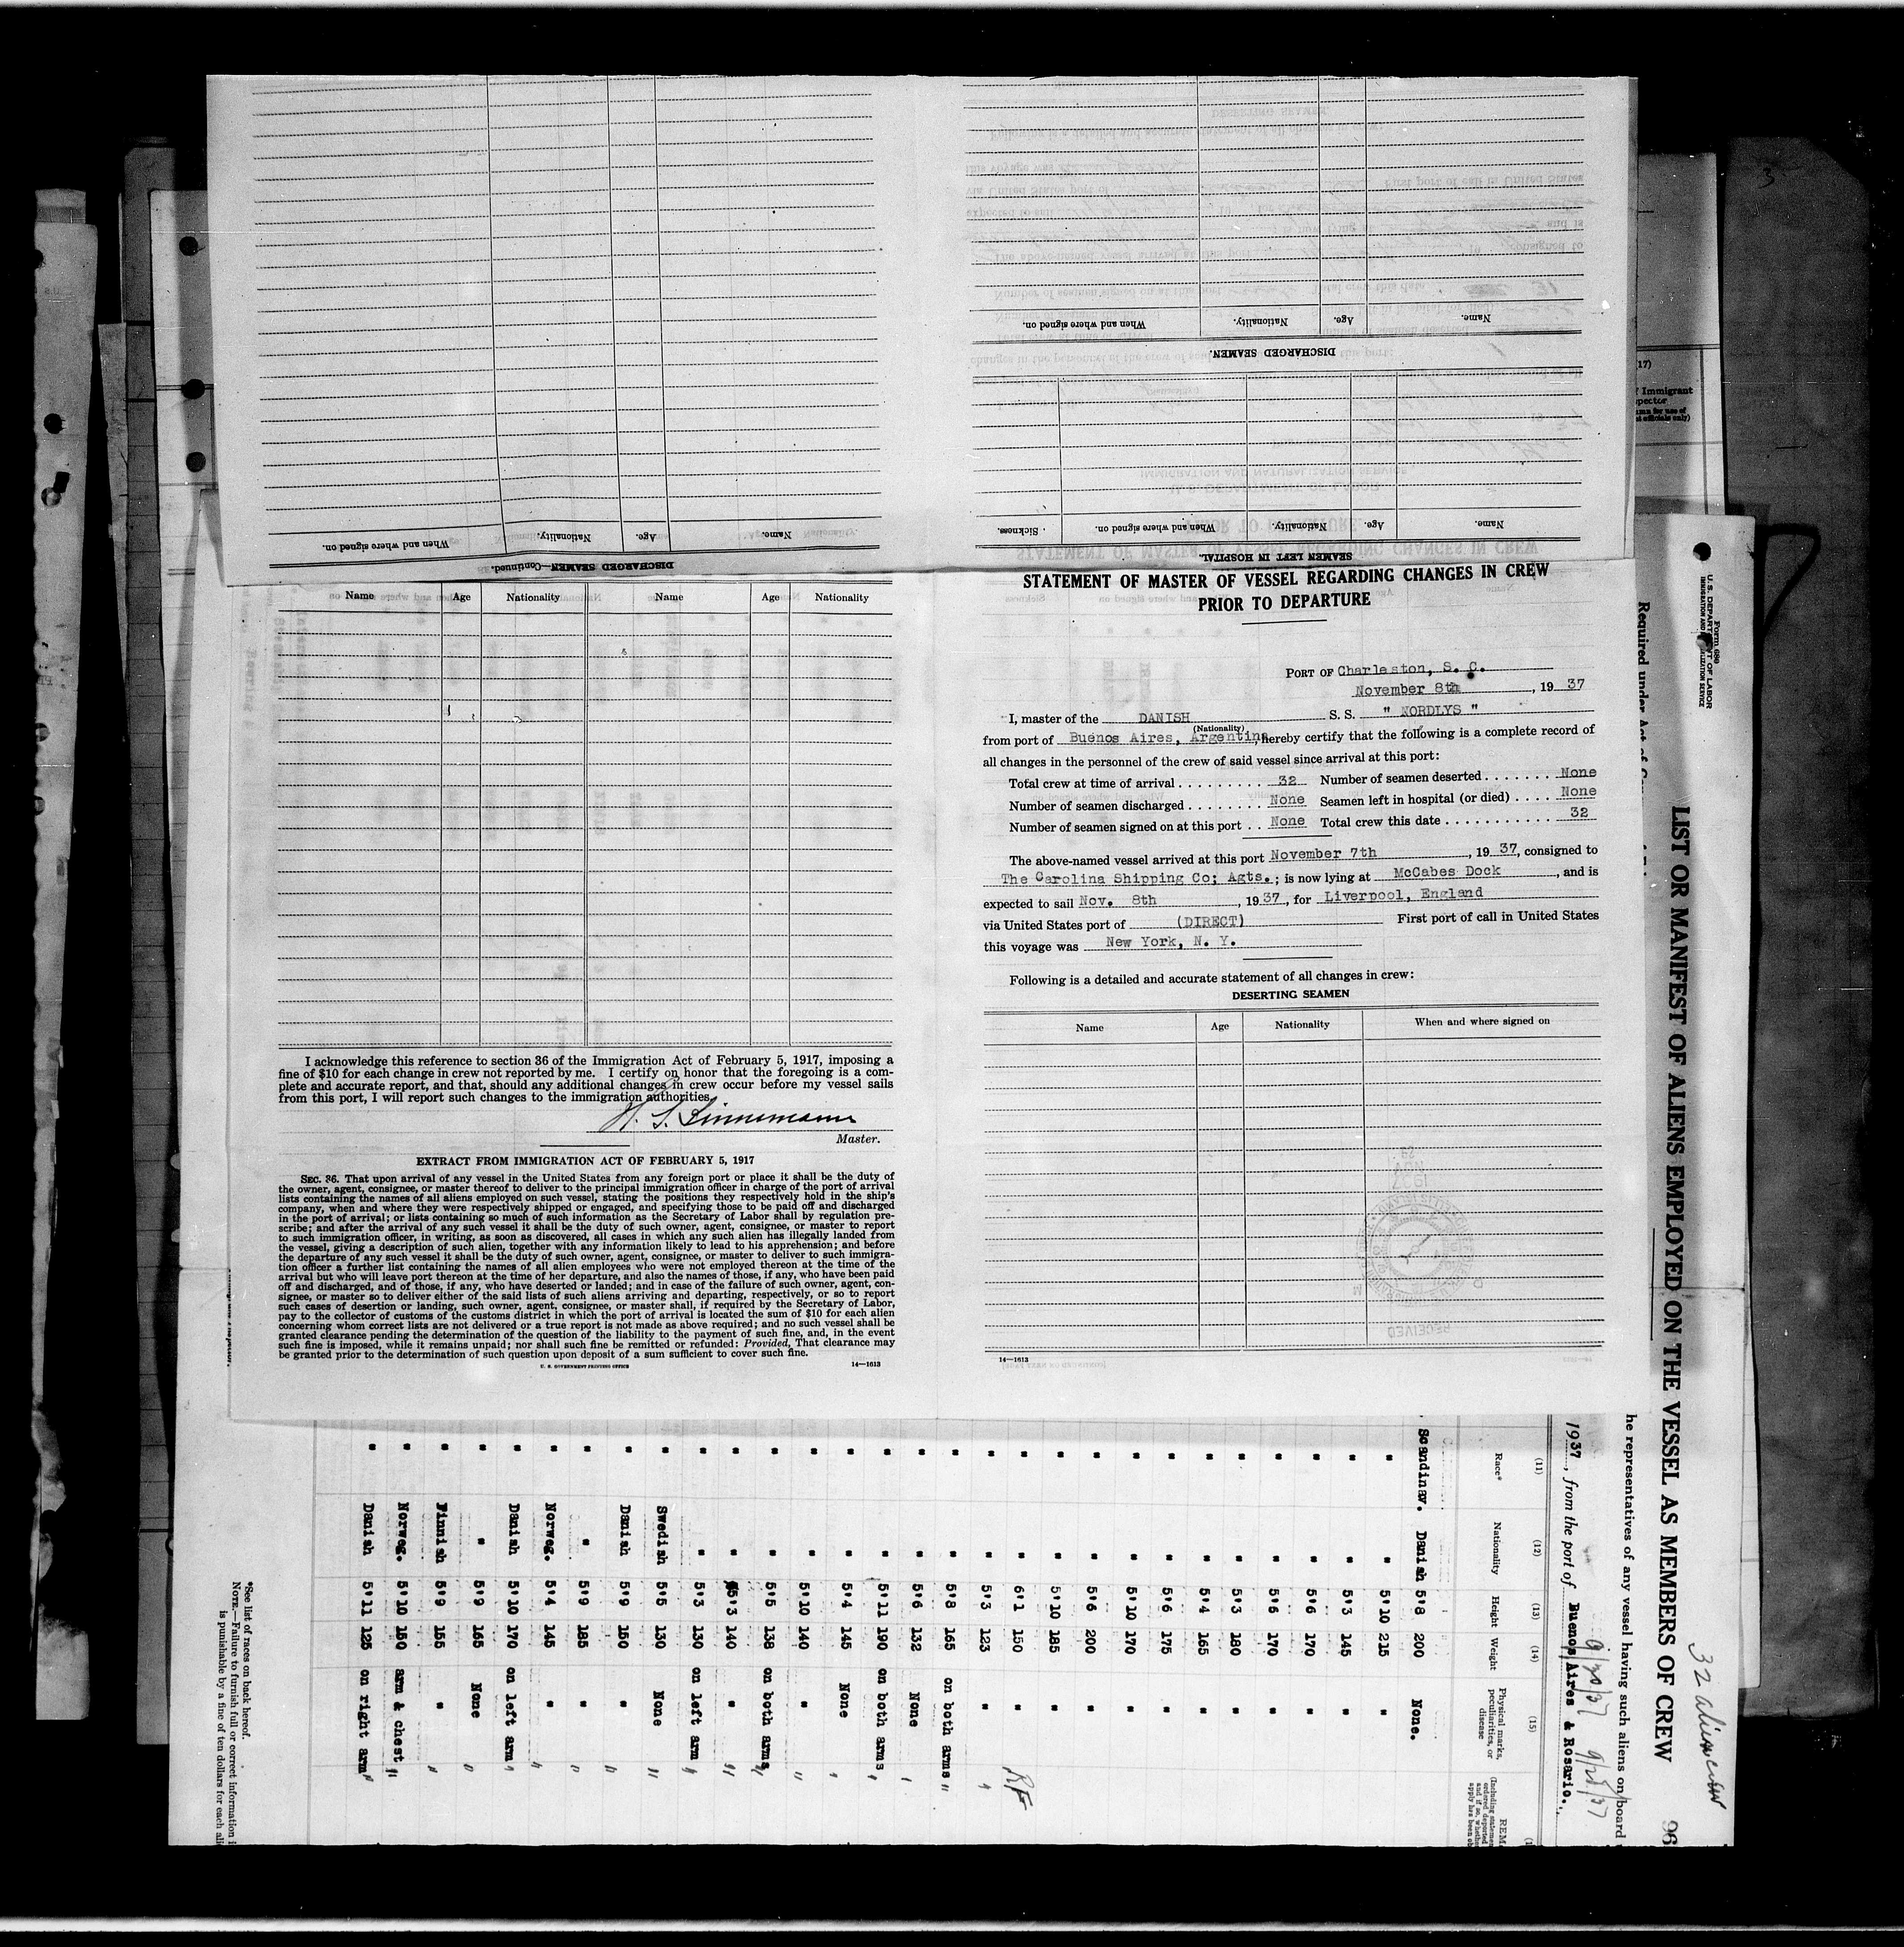 DISCHARGED SEAMEN.
Name. Age. Nationality. When and where signed on.
SEAMEN LEFT IN HOSPITAL.
Name. Age. Nationality. When and where signed on. Sickness.
DISCHARGED SEAMEN—Continued.
Name. Age. Nationality. When and where signed on.
Name Age Nationality Name Age Nationality
I acknowledge this reference to section 36 of the Immigration Act of February 5, 1917, imposing a
fine of $10 for each change in crew not reported by me. I certify on honor that the foregoing is a com-
plete and accurate report, and that, should any additional changes in crew occur before my vessel sails
from this port, I will report such changes to the immigration authorities.
H. S. Linnemann
Master.
EXTRACT FROM IMMIGRATION ACT OF FEBRUARY 5, 1917
SEC. 36. That upon arrival of any vessel in the United States from any foreign port or place it shall be the duty of
the owner, agent, consignee, or master thereof to deliver to the principal immigration officer in charge of the port of arrival
lists containing the names of all aliens employed on such vessel, stating the positions they respectively hold in the ship's
company, when and where they were respectively shipped or engaged, and specifying those to be paid off and discharged
in the port of arrival; or lists containing so much of such information as the Secretary of Labor shall by regulation pre-
scribe; and after the arrival of any such vessel it shall be the duty of such owner, agent, consignee, or master to report
to such immigration officer, in writing, as soon as discovered, all cases in which any such alien has illegally landed from
the vessel, giving a description of such alien, together with any information likely to lead to his apprehension; and before
the departure of any such vessel it shall be the duty of such owner, agent, consignee, or master to deliver to such immigra-
tion officer a further list containing the names of all alien employees who were not employed thereon at the time of the
arrival but who will leave port thereon at the time of her departure, and also the names of those, if any, who have been paid
off and discharged, and of those, if any, who have deserted or landed; and in case of the failure of such owner, agent, con-
signee, or master so to deliver either of the said lists of such aliens arriving and departing, respectively, or so to report
such cases of desertion or landing, such owner, agent, consignee, or master shall, if required by the Secretary of Labor,
pay to the collector of customs of the customs district in which the port of arrival is located the sum of $10 for each alien
concerning whom correct lists are not delivered or a true report is not made as above required; and no such vessel shall be
granted clearance pending the determination of the question of the liability to the payment of such fine, and, in the event
such fine is imposed, while it remains unpaid; nor shall such fine be remitted or refunded: Provided, That clearance may
be granted prior to the determination of such question upon deposit of a sum sufficient to cover such fine.
U. S. GOVERNMENT PRINTING OFFICE 14—1613
STATEMENT OF MASTER OF VESSEL REGARDING CHANGES IN CREW
PRIOR TO DEPARTURE
PORT OF Charleston, S. C.
November 8th, 1937
I, master of the DANISH S. S. " NORDLYS "
(Nationality)
from port of Buenos Aires, Argentina, hereby certify that the following is a complete record of
all changes in the personnel of the crew of said vessel since arrival at this port:
Total crew at time of arrival . . . . . . . . . . 32 Number of seamen deserted . . . . . . . None
Number of seamen discharged . . . . . . . . None Seamen left in hospital (or died) . . . . None
Number of seamen signed on at this port . . None Total crew this date . . . . . . . . . . . 32
The above-named vessel arrived at this port November 7th, 1937, consigned to
The Carolina Shipping Co; Agts.; is now lying at McCabes Dock, and is
expected to sail Nov. 8th, 1937, for Liverpool, England
via United States port of (DIRECT) First port of call in United States
this voyage was New York, N. Y.
Following is a detailed and accurate statement of all changes in crew:
DESERTING SEAMEN
Name Age Nationality When and where signed on
14—1613
(17)
Immigrant
Form 680
U. S. DEPARTMENT OF LABOR
Required under Act of
LIST OR MANIFEST OF ALIENS EMPLOYED ON THE VESSEL AS MEMBERS OF CREW 96
32 alien crew
he representatives of any vessel having such aliens on board
1937, from the port of Buenos Aires & Rosario.
9/20/37 9/25/37
(11) (12) (13) (14) (15)
Race* Nationality Height Weight Physical marks, peculiarities, or disease
Scandinav. Danish 5'8 200 None.
" " 5'10 215 "
" " 5'3 145 "
" " 5'6 170 "
" " 5'6 170 "
" " 5'3 180 "
" " 5'4 165 "
" " 5'6 175 "
" " 5'10 170 "
" " 5'6 200 "
" " 5'10 185 "
" " 6'1 150 " RF
" " 5'3 123 " "
" " 5'8 165 on both arms "
" " 5'6 132 None "
" " 5'11 190 on both arms "
" " 5'4 145 None "
" " 5'10 140 " "
" " 5'5 138 on both arms "
" " 5'3 140 " "
" " 5'3 130 on left arm "
" Swedish 5'5 130 None "
" Danish 5'9 150 " "
" " 5'9 185 " "
" Norweg. 5'4 145 " "
" Danish 5'10 170 on left arm "
" " 5'9 165 None "
" Finnish 5'9 155 " "
" Norweg. 5'10 150 arm & chest "
" Danish 5'11 125 on right arm "
*See list of races on back hereof.
NOTE.—Failure to furnish full or correct information
is punishable by a fine of ten dollars for each